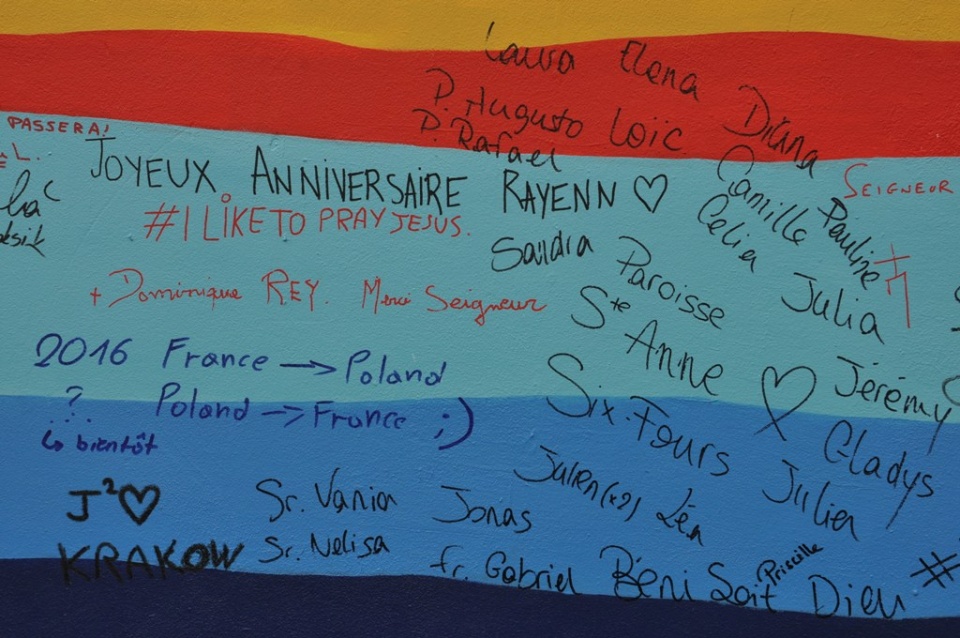 Laura Elena Diana
P. Augusto Loïc
P. Rafael
PASSERA!
JOYEUX ANNIVERSAIRE RAYENN ♡
#I LIKE TO PRAY JESUS.
Camille Pauline
SEIGNEUR
Célia
Sandra
Paroisse
Ste Anne ♡
Six-Fours
Julia
Jérémy
Gladys
+ Dominique REY. Merci Seigneur
2016 France → Poland
? Poland → France ;)
bientôt
J²♡
KRAKOW
Sr. Vania
Sr. Nelisa
Jonas
Julien (x2) Léa
Julien
fr. Gabriel
Béni Soit Dieu
Priscille
#